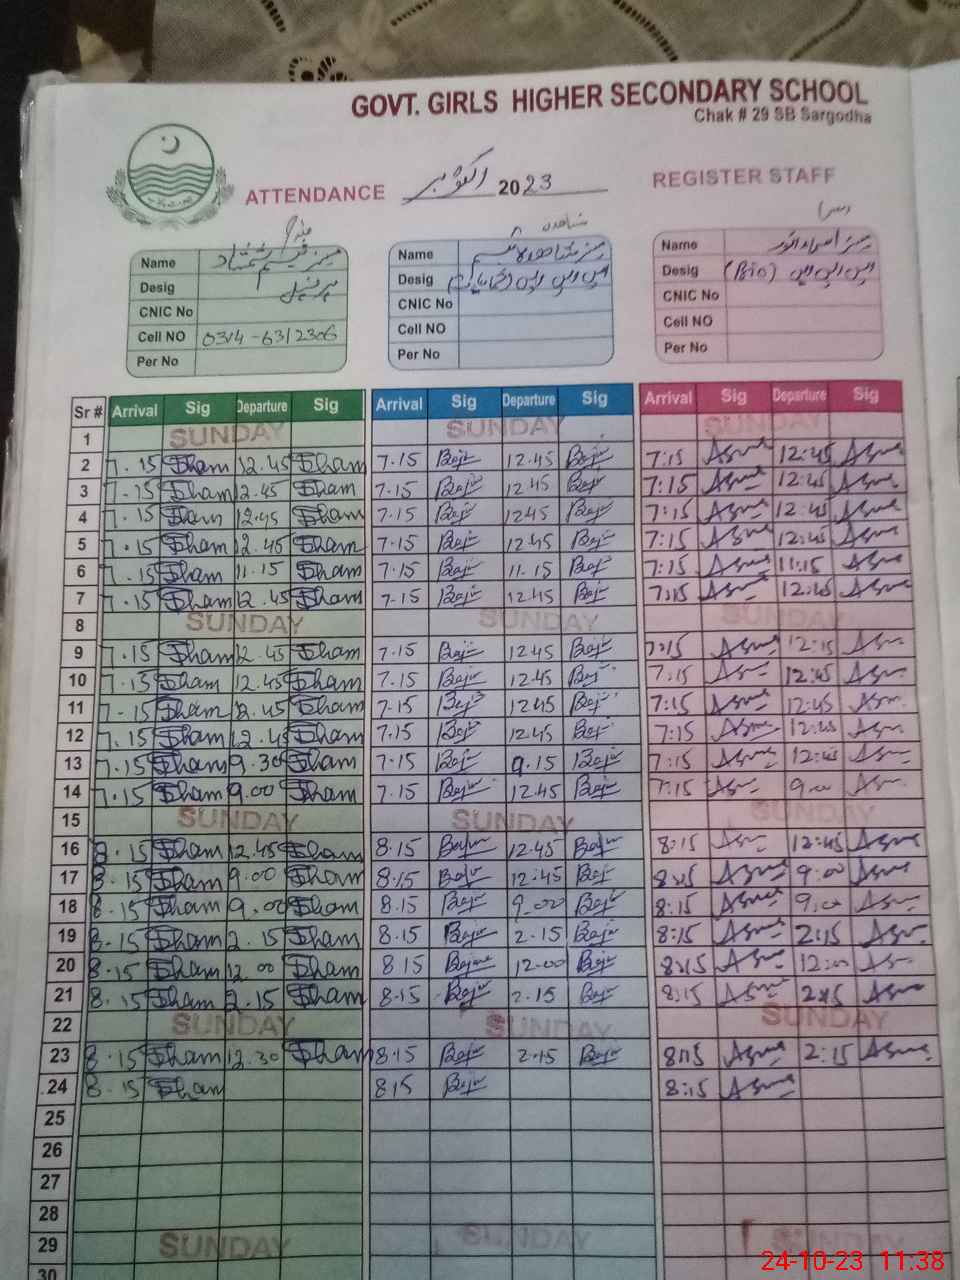 GOVT. GIRLS HIGHER SECONDARY SCHOOL
Chak # 29 SB Sargodha
ATTENDANCE اکتوبر 2023 REGISTER STAFF
Name
Desig پرنسپل
CNIC No
Cell NO 0314-6312306
Per No
Name
Desig
CNIC No
Cell NO
Per No
Name
Desig ایس ایس ایس (Bio)
CNIC No
Cell NO
Per No
Sr # Arrival Sig Departure Sig Arrival Sig Departure Sig Arrival Sig Departure Sig
1 SUNDAY SUNDAY SUNDAY
2 7.15 Sham 12.45 Sham 7.15 12.45 7:15 Asma 12:45 Asma
3 7.15 Sham 12.45 Sham 7.15 12.45 7:15 Asma 12:45 Asma
4 7.15 Sham 12.45 Sham 7.15 12.45 7:15 Asma 12:45 Asma
5 7.15 Sham 12.45 Sham 7.15 12.45 7:15 Asma 12:45 Asma
6 7.15 Sham 11.15 Sham 7.15 11.15 7:15 Asma 11:15 Asma
7 7.15 Sham 12.45 Sham 7.15 12.45 7:15 Asma 12:45 Asma
8 SUNDAY SUNDAY SUNDAY
9 7.15 Sham 12.45 Sham 7.15 12.45 7:15 Asma 12:15 Asma
10 7.15 Sham 12.45 Sham 7.15 12.45 7:15 Asma 12:45 Asma
11 7.15 Sham 12.45 Sham 7.15 12.45 7:15 Asma 12:45 Asma
12 7.15 Sham 12.45 Sham 7.15 12.45 7:15 Asma 12:45 Asma
13 7.15 Sham 9.30 Sham 7.15 9.15 7:15 Asma 12:45 Asma
14 7.15 Sham 9.00 Sham 7.15 12.45 7:15 Asma 9:00 Asma
15 SUNDAY SUNDAY SUNDAY
16 8.15 Sham 12.45 Sham 8.15 12.45 8:15 Asma 12:45 Asma
17 8.15 Sham 9.00 Sham 8.15 12.45 8:15 Asma 9:00 Asma
18 8.15 Sham 9.00 Sham 8.15 9.00 8:15 Asma 9:00 Asma
19 8.15 Sham 2.15 Sham 8.15 2.15 8:15 Asma 2:15 Asma
20 8.15 Sham 12.00 Sham 8 15 12.00 8:15 Asma 12:00 Asma
21 8.15 Sham 2.15 Sham 8.15 2.15 8:15 Asma 2:15 Asma
22 SUNDAY SUNDAY SUNDAY
23 8.15 Sham 12.30 Sham 8.15 2.15 8:15 Asma 2:15 Asma
24 8.15 Sham 8.15 8:15 Asma
25
26
27
28
29 SUNDAY SUNDAY SUNDAY
30
24-10-23 11:38